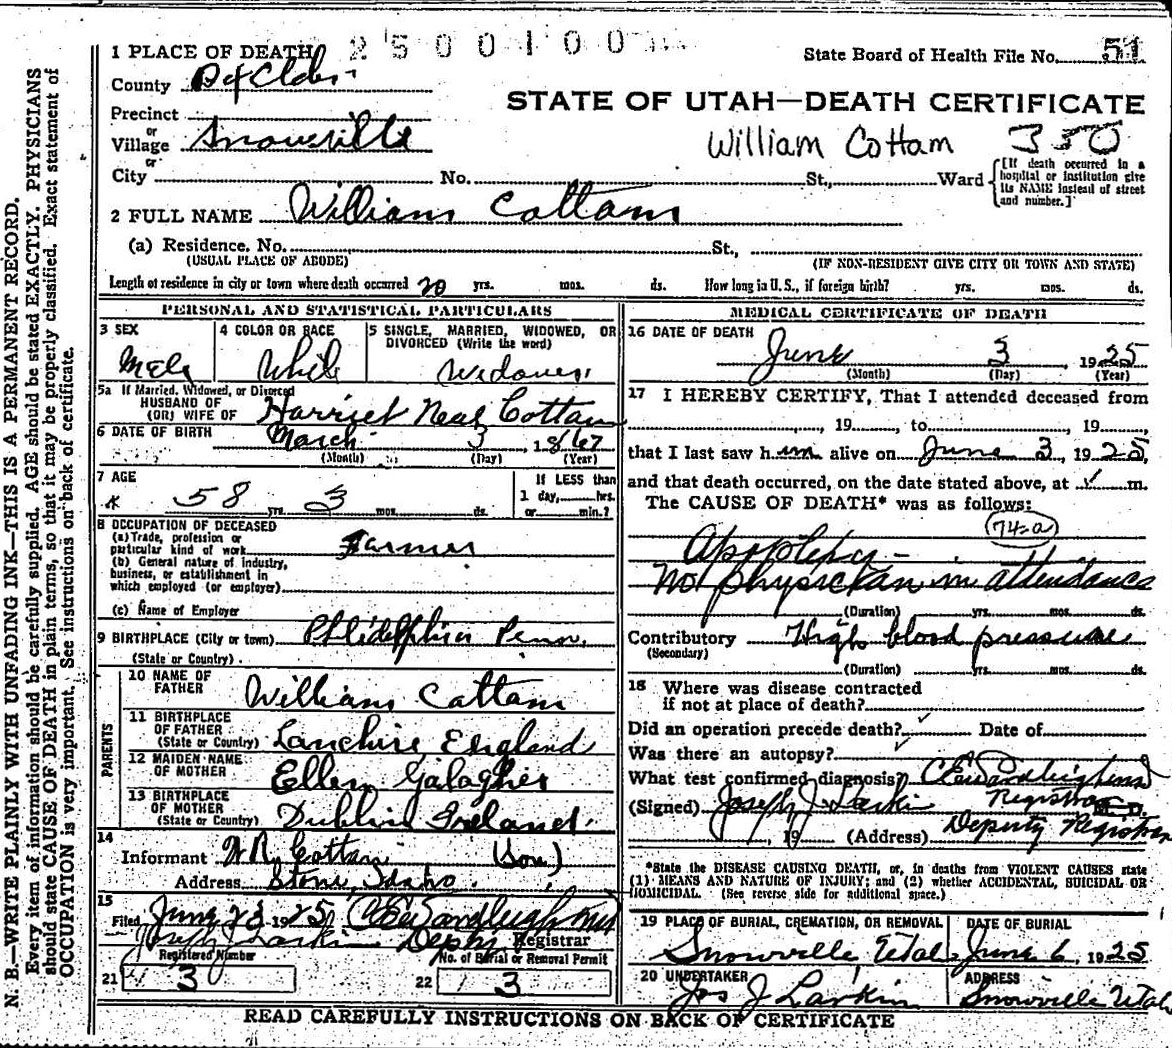 N. B.—WRITE PLAINLY WITH UNFADING INK—THIS IS A PERMANENT RECORD.
Every item of information should be carefully supplied. AGE should be stated EXACTLY. PHYSICIANS
should state CAUSE OF DEATH in plain terms, so that it may be properly classified. Exact statement of
OCCUPATION is very important. See instructions on back of certificate.
1 PLACE OF DEATH 2500100
State Board of Health File No. 51
County Box Elder
STATE OF UTAH—DEATH CERTIFICATE
Precinct
or
Village Snowville
William Cottam 350
or
City No. St., Ward
[If death occurred in a
hospital or institution give
its NAME instead of street
and number.]
2 FULL NAME William Cottam
(a) Residence. No. St.,
(USUAL PLACE OF ABODE) (IF NON-RESIDENT GIVE CITY OR TOWN AND STATE)
Length of residence in city or town where death occurred 20 yrs. mos. ds. How long in U. S., if foreign birth? yrs. mos. ds.
PERSONAL AND STATISTICAL PARTICULARS
3 SEX Male
4 COLOR OR RACE White
5 SINGLE, MARRIED, WIDOWED, OR
DIVORCED (Write the word)
Widower
5a If Married, Widowed, or Divorced
HUSBAND OF
(OR) WIFE OF Harriet Neal Cottam
6 DATE OF BIRTH March 3 1867
(Month) (Day) (Year)
7 AGE
58 yrs. 3 mos. ds.
If LESS than
1 day, hrs.
or min.?
8 OCCUPATION OF DECEASED
(a) Trade, profession or
particular kind of work Farmer
(b) General nature of industry,
business, or establishment in
which employed (or employer)
(c) Name of Employer
9 BIRTHPLACE (City or town) Philidelphia Penn.
(State or Country)
PARENTS
10 NAME OF
FATHER William Cottam
11 BIRTHPLACE
OF FATHER
(State or Country) Lanchire England
12 MAIDEN NAME
OF MOTHER Ellen Galagher
13 BIRTHPLACE
OF MOTHER
(State or Country) Dublin Ireland.
14
Informant W R Cottam (Son)
Address Stone, Idaho.
15
Filed June 23 1925
Joseph J Larkin Depty Registrar
Registered Number
No. of Burial or Removal Permit
21 3
22 3
MEDICAL CERTIFICATE OF DEATH
16 DATE OF DEATH
June 3 1925
(Month) (Day) (Year)
17 I HEREBY CERTIFY, That I attended deceased from
, 19 , to , 19 ,
that I last saw him alive on June 3, 1925,
and that death occurred, on the date stated above, at m.
The CAUSE OF DEATH* was as follows:
74-a
Apoplexy —
No physician in attendance
(Duration) yrs. mos. ds.
Contributory High blood pressure
(Secondary)
(Duration) yrs. mos. ds.
18 Where was disease contracted
if not at place of death?
Did an operation precede death? Date of
Was there an autopsy?
What test confirmed diagnosis?
Registrar
(Signed) Joseph J Larkin
, 19 (Address) Deputy Registrar
*State the DISEASE CAUSING DEATH, or, in deaths from VIOLENT CAUSES state
(1) MEANS AND NATURE OF INJURY; and (2) whether ACCIDENTAL, SUICIDAL OR
HOMICIDAL. (See reverse side for additional space.)
19 PLACE OF BURIAL, CREMATION, OR REMOVAL
Snowville, Utah
DATE OF BURIAL
June 6, 1925
20 UNDERTAKER
Jos J Larkin
ADDRESS
Snowville Utah
READ CAREFULLY INSTRUCTIONS ON BACK OF CERTIFICATE